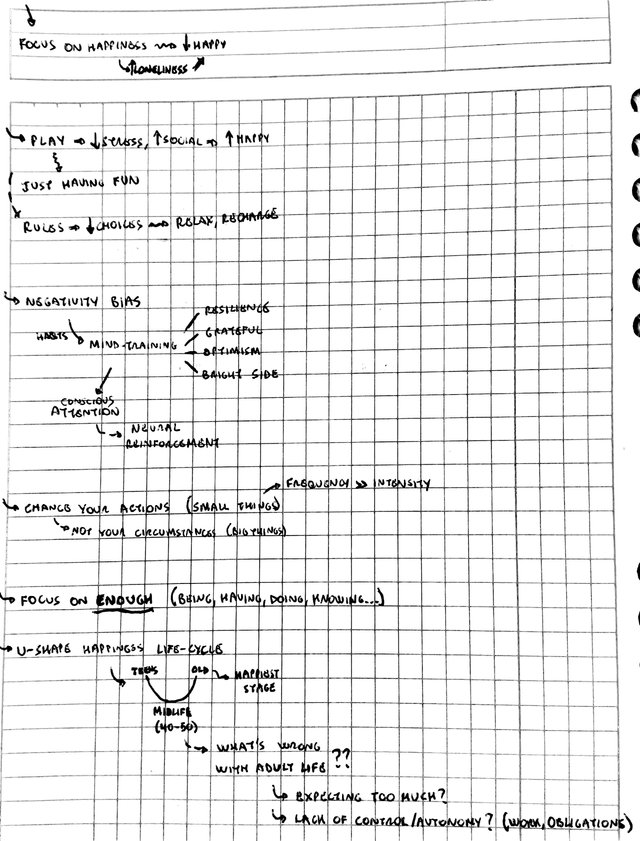 FOCUS ON HAPPINESS ⇝ ↓HAPPY
↑LONELINESS
PLAY ⇒ ↓STRESS, ↑SOCIAL ⇒ ↑HAPPY
JUST HAVING FUN
RULES ⇒ ↓CHOICES ⇝ RELAX, RECHARGE
NEGATIVITY BIAS
HABITS
MIND-TRAINING
RESILIENCE
GRATEFUL
OPTIMISM
BRIGHT SIDE
CONSCIOUS
ATTENTION
NEURAL
REINFORCEMENT
FREQUENCY >> INTENSITY
CHANGE YOUR ACTIONS (SMALL THINGS)
NOT YOUR CIRCUMSTANCES (BIG THINGS)
FOCUS ON ENOUGH (BEING, HAVING, DOING, KNOWING...)
U-SHAPE HAPPINESS LIFE-CYCLE
TEENS OLD → HAPPIEST
STAGE
MIDLIFE
(40-50)
WHAT'S WRONG
WITH ADULT LIFE ??
EXPECTING TOO MUCH?
LACK OF CONTROL/AUTONOMY? (WORK, OBLIGATIONS)